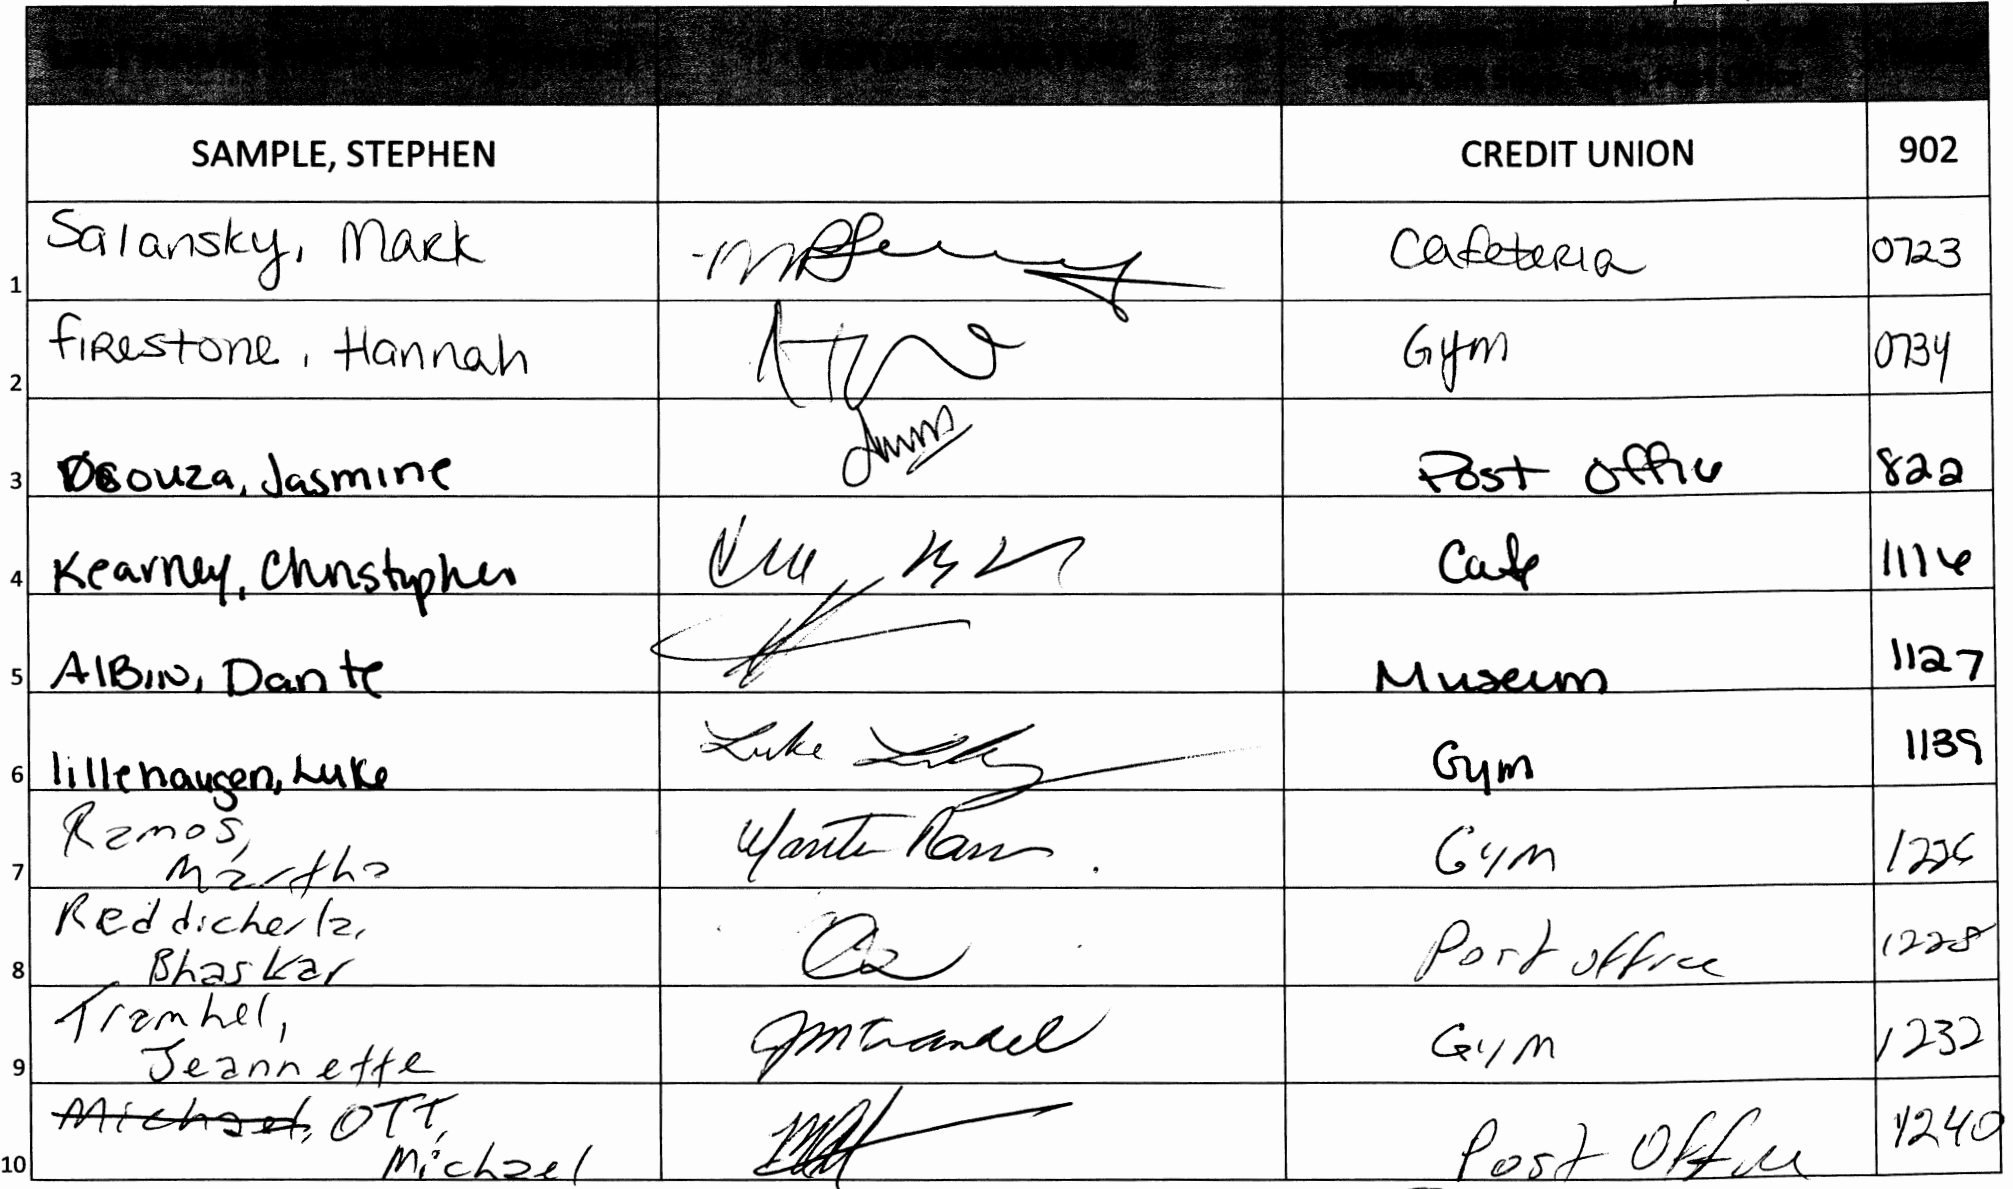 SAMPLE, STEPHEN CREDIT UNION 902
1 Salansky, Mark Cafeteria 0723
2 Firestone, Hannah Gym 0734
3 Dsouza, Jasmine Post Office 822
4 Kearney, Christopher Cafe 1116
5 Albin, Dante Museum 1127
6 lillehaugen, Luke Luke Gym 1139
Ramos,
7 Martha Gym 1226
8 Bhaskar Post office 1228
9 Jeannette Gym 1232
Michael, OTT,
10 Michael Post Office 1240